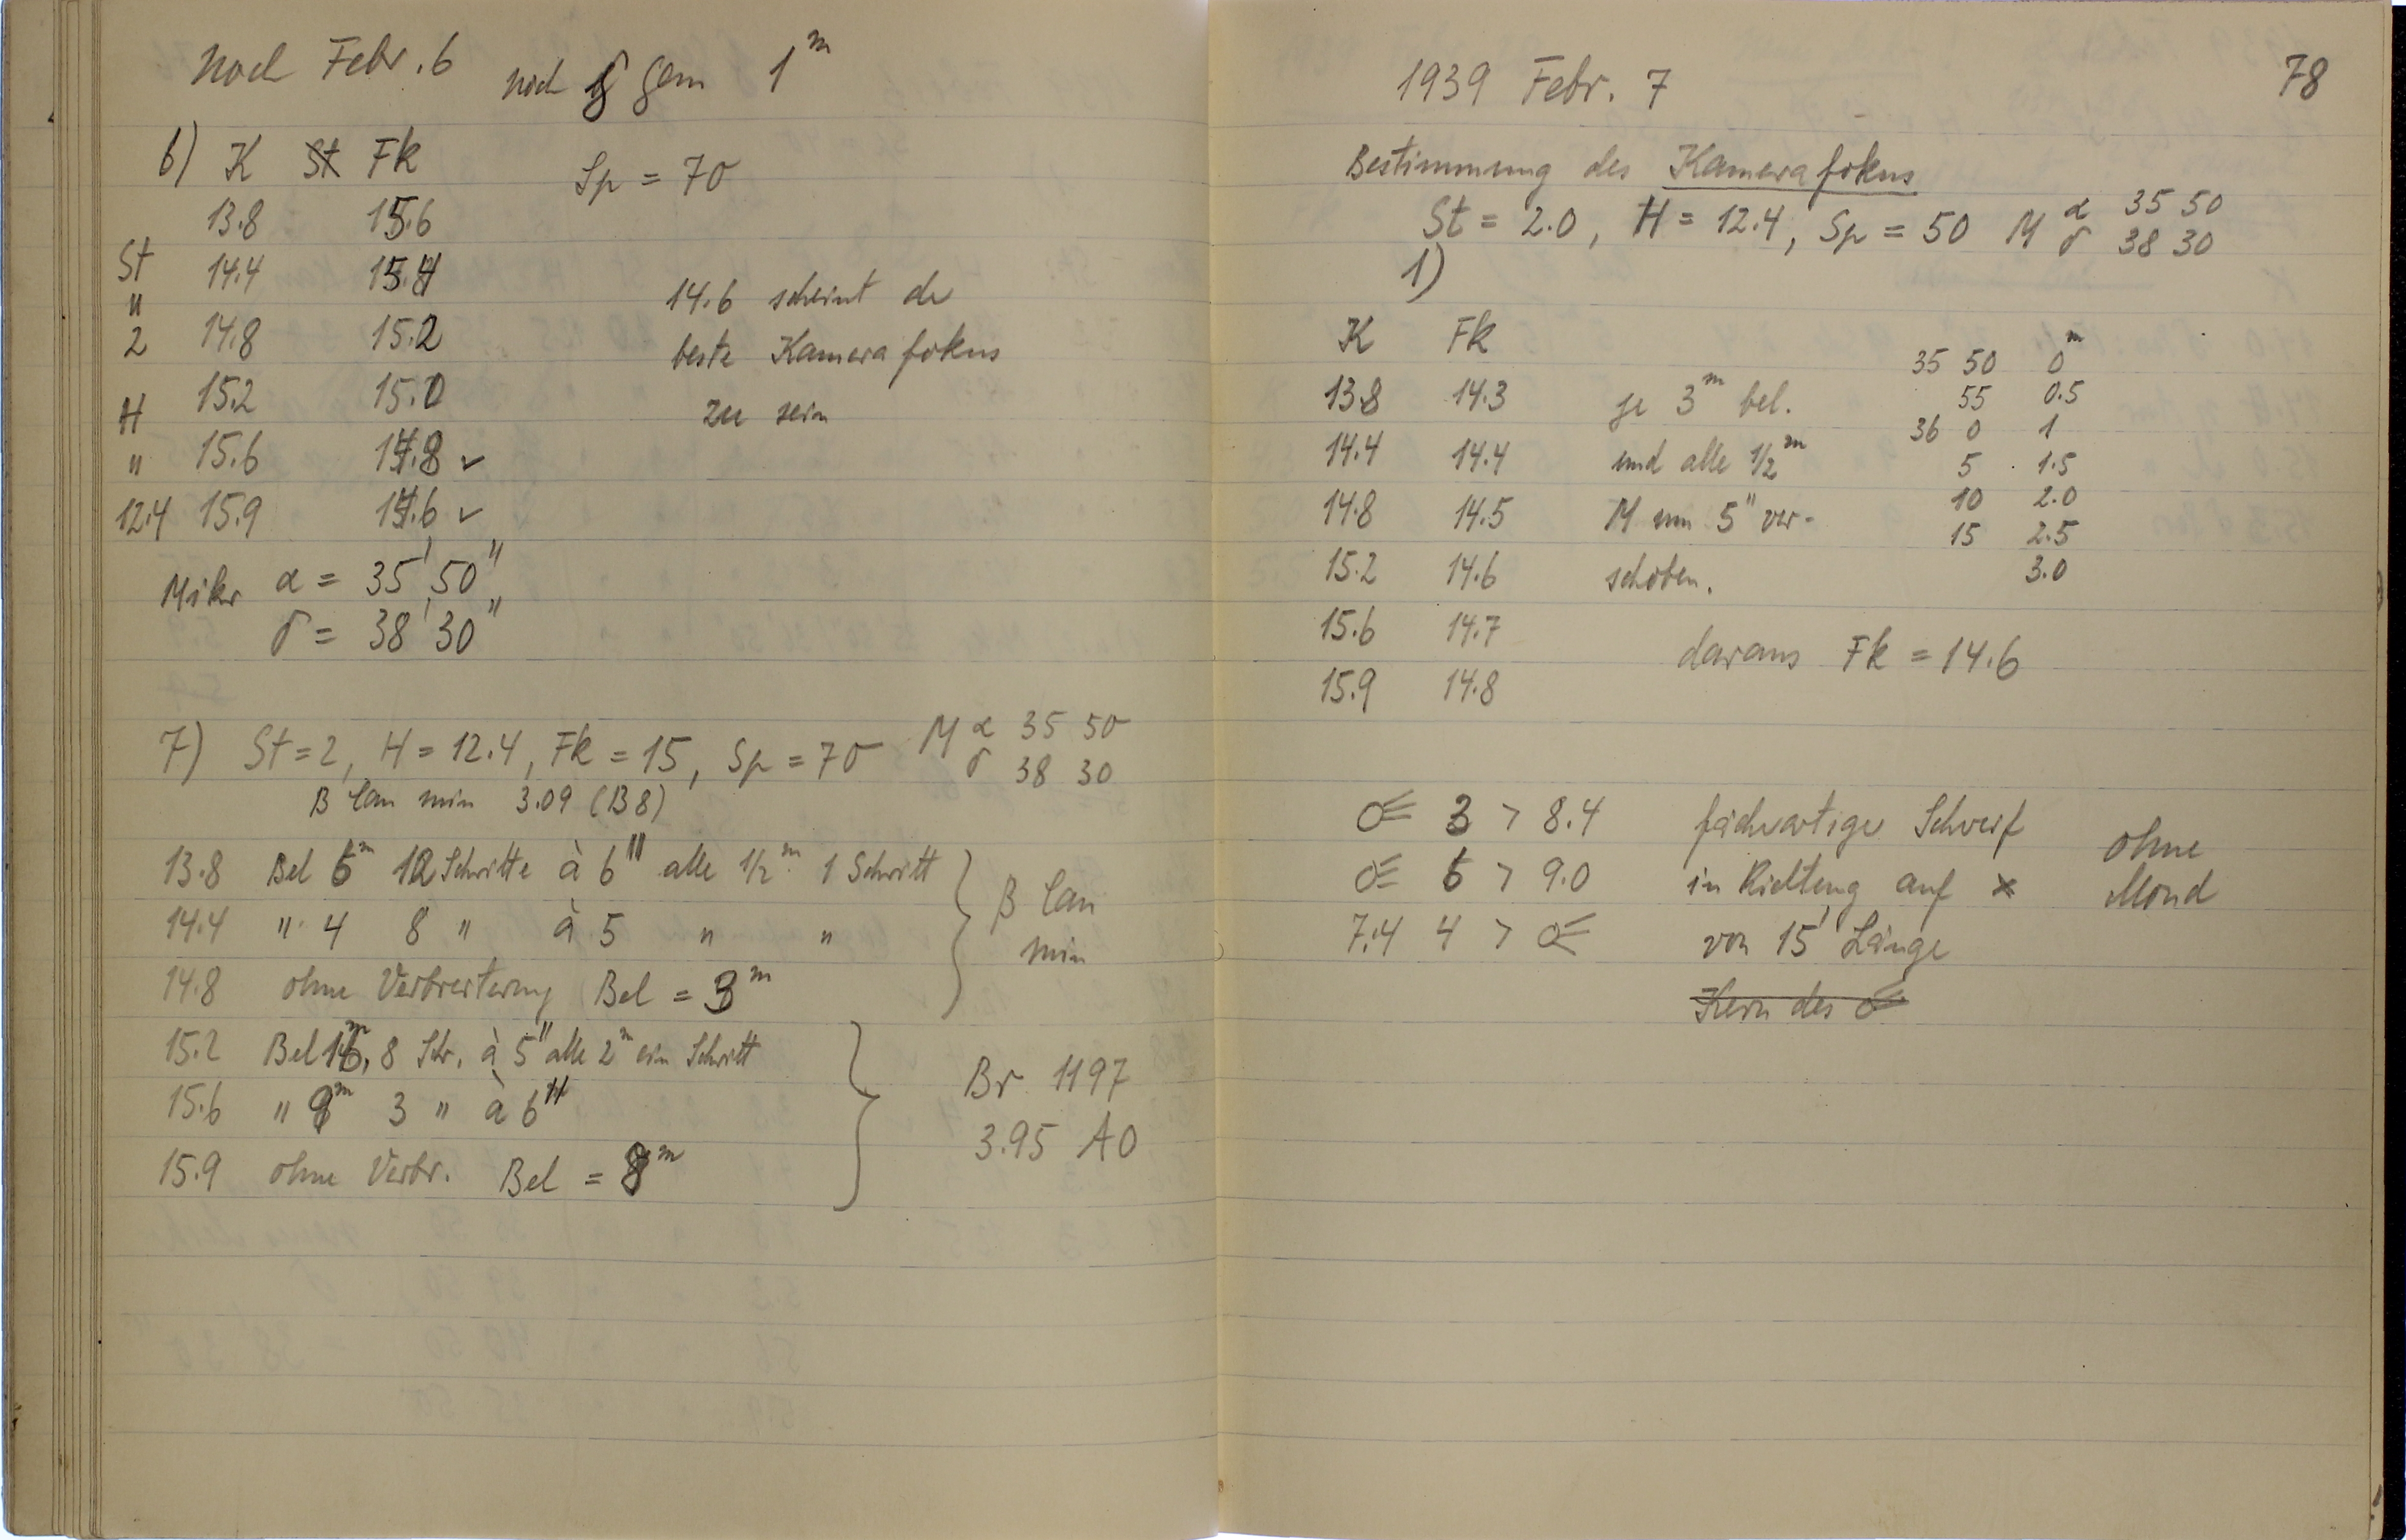 Noch Febr. 6 noch δ Gem 1ᵐ
6) K St Fk Sp = 70
13.8 15.6
St 14.4 15.4
" 14.6 scheint de
2 14.8 15.2
beste Kamerafokus
H 15.2 15.0
zu sein
" 15.6 14.8 ✓
12.4 15.9 14.6 ✓
Mikr α = 35' 50"
δ = 38' 30"
7) St = 2, H = 12.4, Fk = 15, Sp = 70 M α 35 50
δ 38 30
β Can min 3.09 (B8)
13.8 Bel 6ᵐ 12 Schritte à 6" alle 1/2ᵐ 1 Schritt
14.4 " 4 8 " à 5 " "
β Can
min
14.8 ohne Verbreiterung Bel = 3ᵐ
15.2 Bel 16ᵐ, 8 Schr. à 5" alle 2ᵐ ein Schritt
15.6 " 9ᵐ 3 " à 6"
Br 1197
3.95 A0
15.9 ohne Verbr. Bel = 8ᵐ
78
1939 Febr. 7
Bestimmung des Kamerafokus
St = 2.0, H = 12.4, Sp = 50 M α 35 50
δ 38 30
1)
K Fk
13.8 14.3 je 3ᵐ bel.
14.4 14.4 und alle 1/2ᵐ
14.8 14.5 M um 5" ver-
15.2 14.6 schoben.
15.6 14.7
15.9 14.8
35 50 0ᵐ
55 0.5
36 0 1
5 1.5
10 2.0
15 2.5
3.0
daraus Fk = 14.6
☄ 3 > 8.4 fächerartiger Schweif
☄ 6 > 9.0 in Richtung auf ×
7.4 4 > ☄ von 15' Länge
Kern des ☄
ohne
Mond